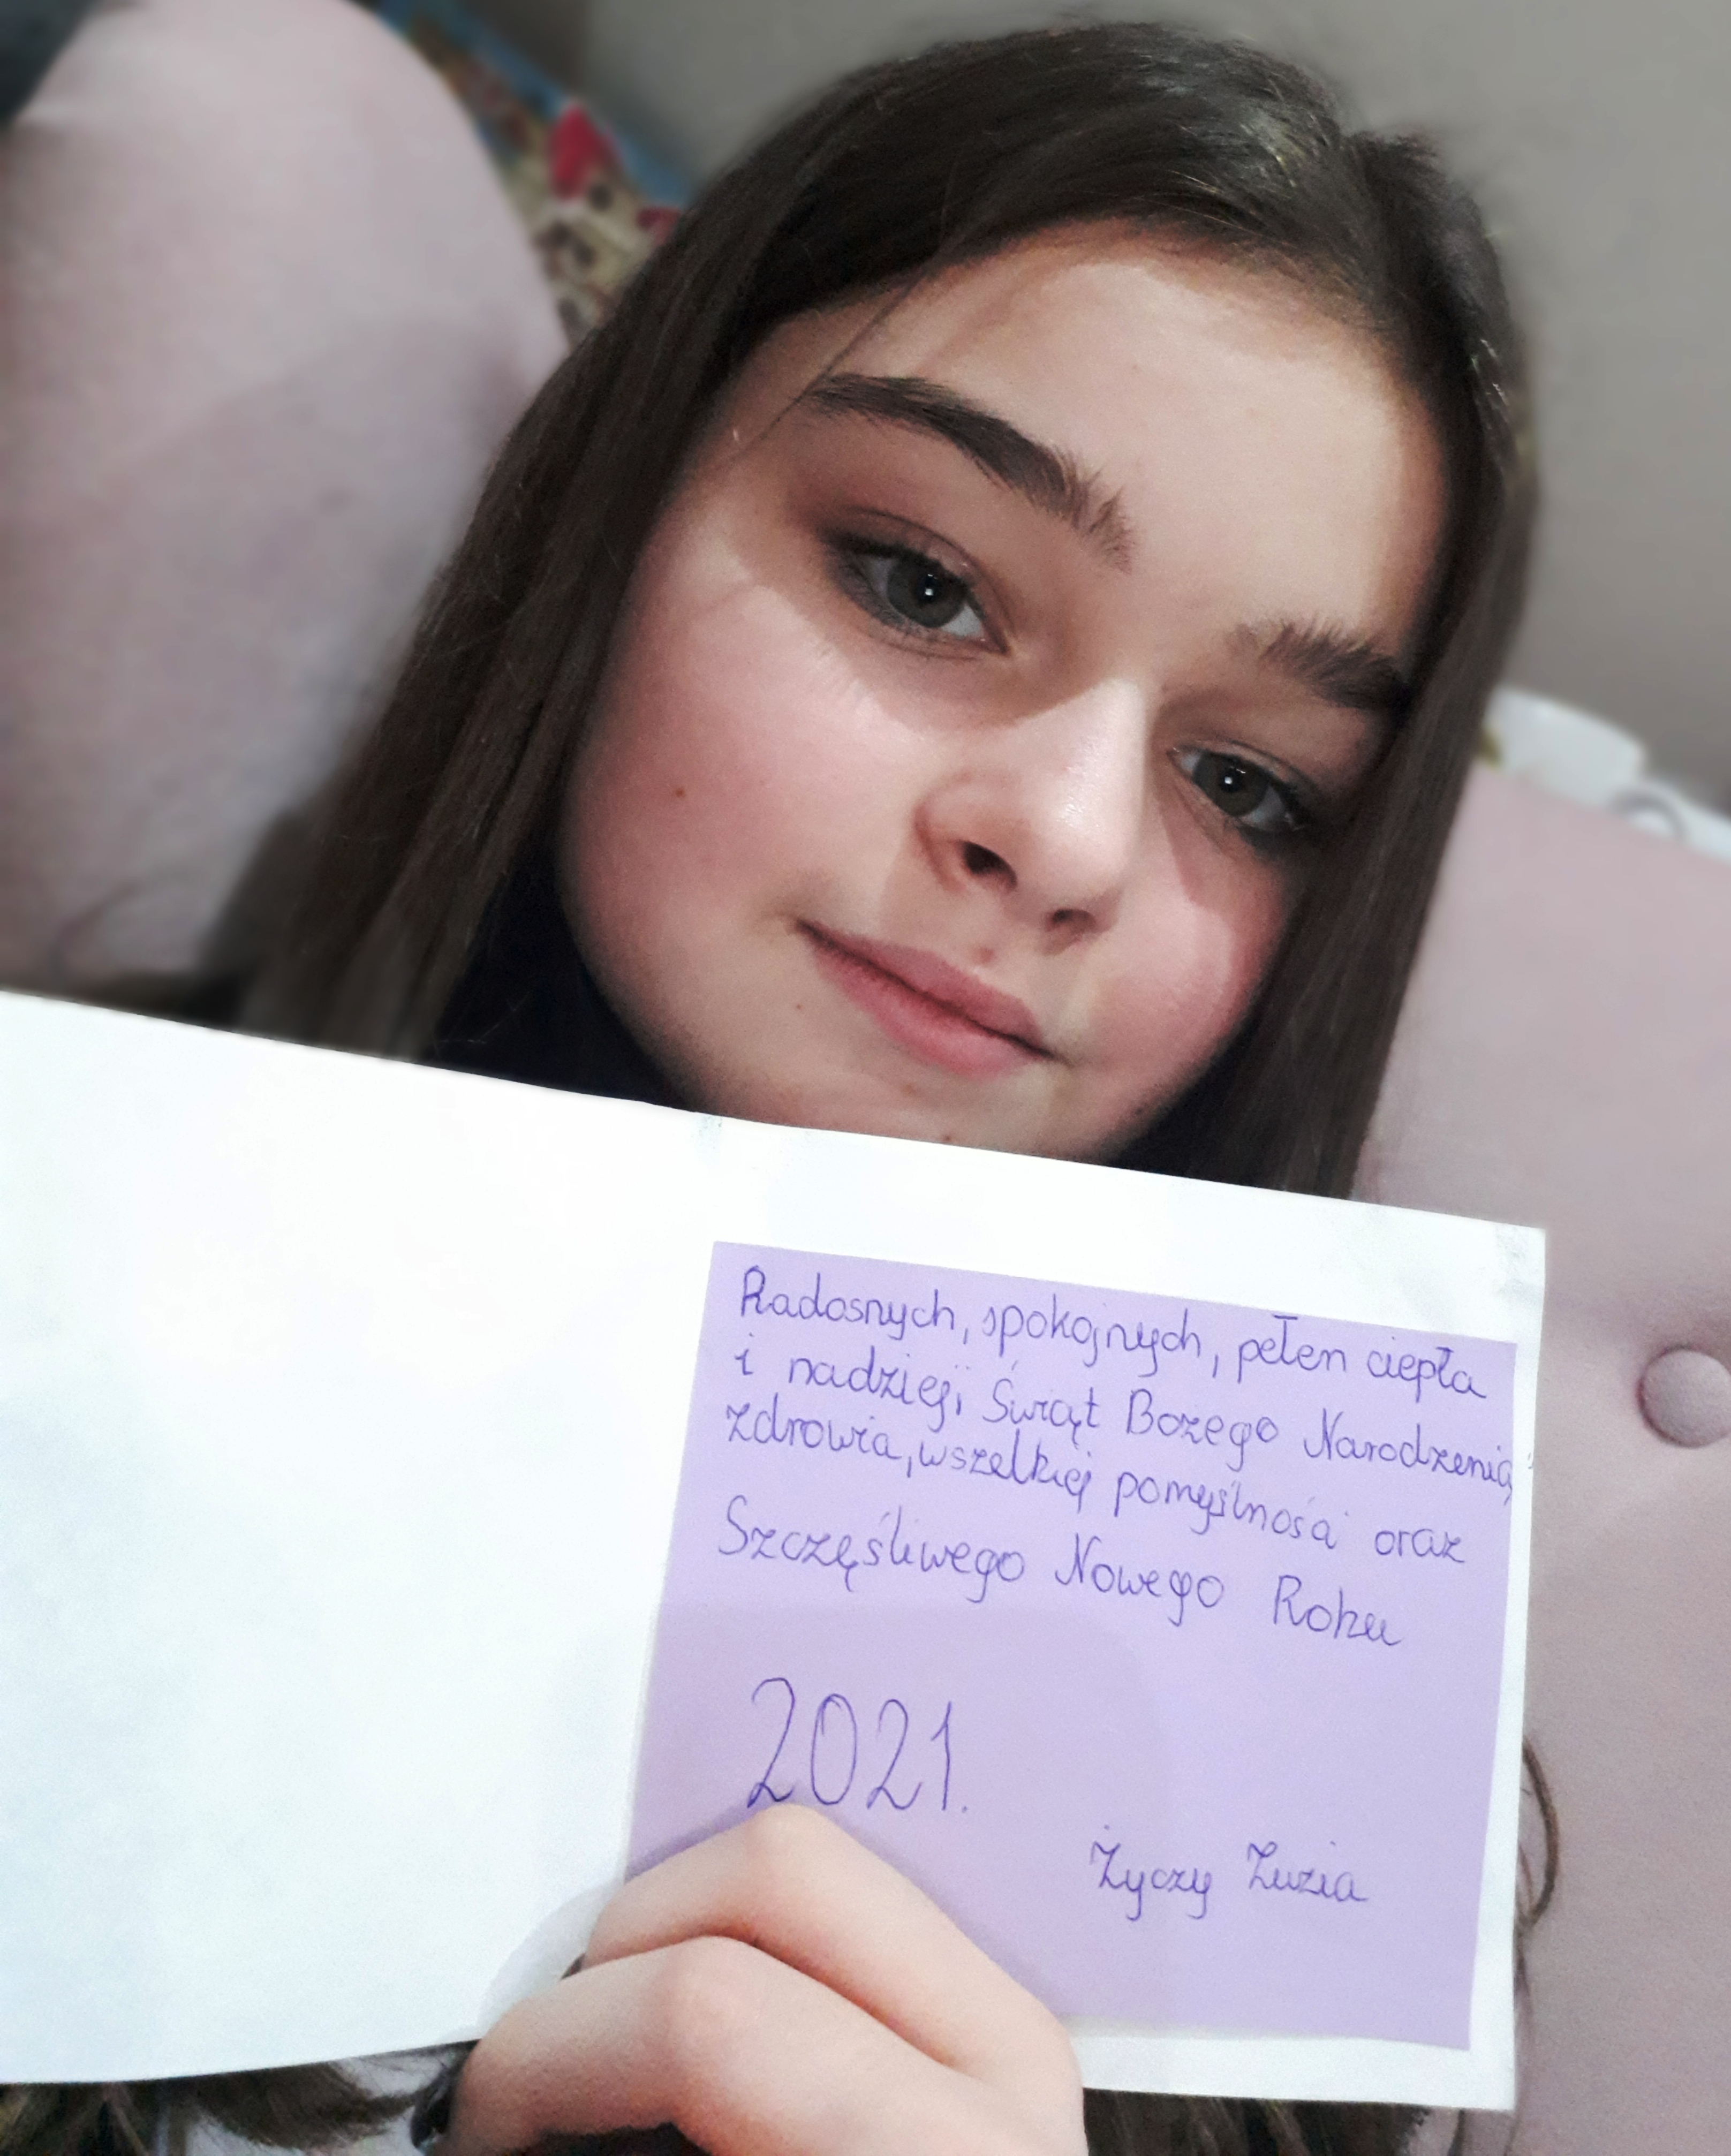 Radosnych, spokojnych, pełen ciepła
i nadzieji, Świąt Bożego Narodzenia,
zdrowia, wszelkiej pomyślności oraz
Szczęśliwego Nowego Roku
2021.
Życzy Zuzia